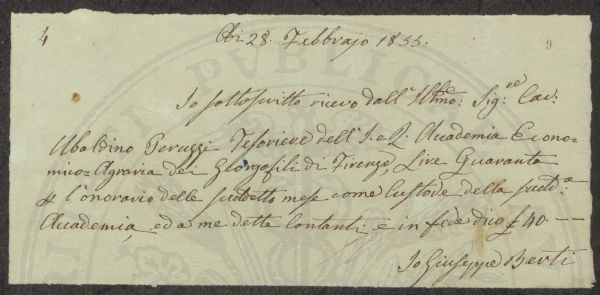 4 Adì 28. Febbrajo 1855. 9
Io sottoscritto ricevo dall'Illmo: Sig:re Cav:
Ubaldino Peruzzi Tesoriere dell'I. e R. Accademia Econo-
mico-Agraria dei Georgofili di Firenze, Lire Quaranta
l'onorario delle suddetto mese come Custode della sudd:a
Accademia, ed a me dette Contanti e in fede dico £ 40. —
Io Giuseppe Berti
PUBLIC